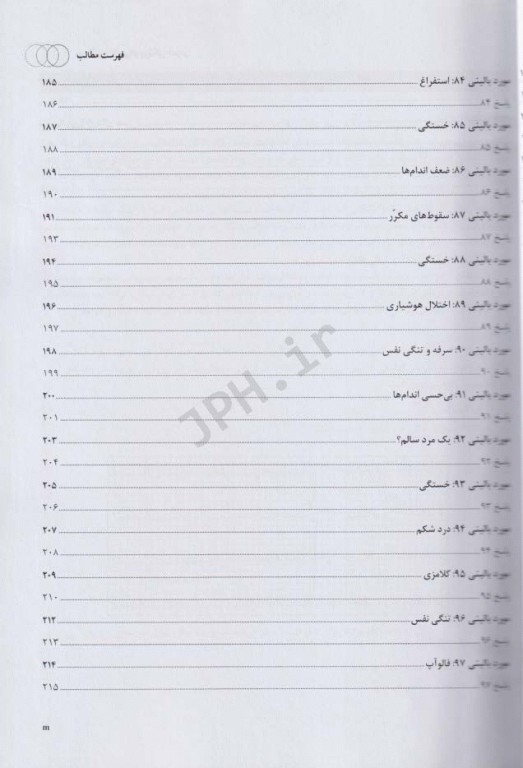 فهرست مطالب
مورد بالینی ۸۴: استفراغ ۱۸۵
پاسخ ۸۴ ۱۸۶
مورد بالینی ۸۵: خستگی ۱۸۷
پاسخ ۸۵ ۱۸۸
مورد بالینی ۸۶: ضعف اندام‌ها ۱۸۹
پاسخ ۸۶ ۱۹۰
مورد بالینی ۸۷: سقوط‌های مکرّر ۱۹۱
پاسخ ۸۷ ۱۹۳
مورد بالینی ۸۸: خستگی ۱۹۴
پاسخ ۸۸ ۱۹۵
مورد بالینی ۸۹: اختلال هوشیاری ۱۹۶
پاسخ ۸۹ ۱۹۷
مورد بالینی ۹۰: سرفه و تنگی نفس ۱۹۸
پاسخ ۹۰ ۱۹۹
مورد بالینی ۹۱: بی‌حسی اندام‌ها ۲۰۰
پاسخ ۹۱ ۲۰۱
مورد بالینی ۹۲: یک مرد سالم؟ ۲۰۳
پاسخ ۹۲ ۲۰۴
مورد بالینی ۹۳: خستگی ۲۰۵
پاسخ ۹۳ ۲۰۶
مورد بالینی ۹۴: درد شکم ۲۰۷
پاسخ ۹۴ ۲۰۸
مورد بالینی ۹۵: کلامزی ۲۰۹
پاسخ ۹۵ ۲۱۰
مورد بالینی ۹۶: تنگی نفس ۲۱۲
پاسخ ۹۶ ۲۱۳
مورد بالینی ۹۷: فالوآپ ۲۱۴
پاسخ ۹۷ ۲۱۵
m
JPH.ir